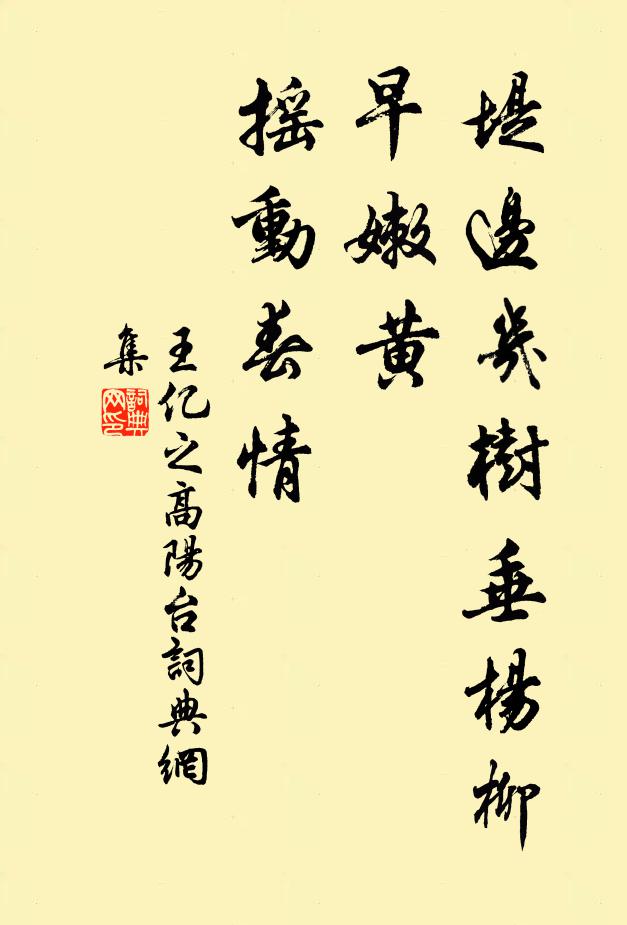 堤邊幾樹垂楊柳
早嫩黃
搖動春情
王亿之高陽台詞典網
集
詞典网印